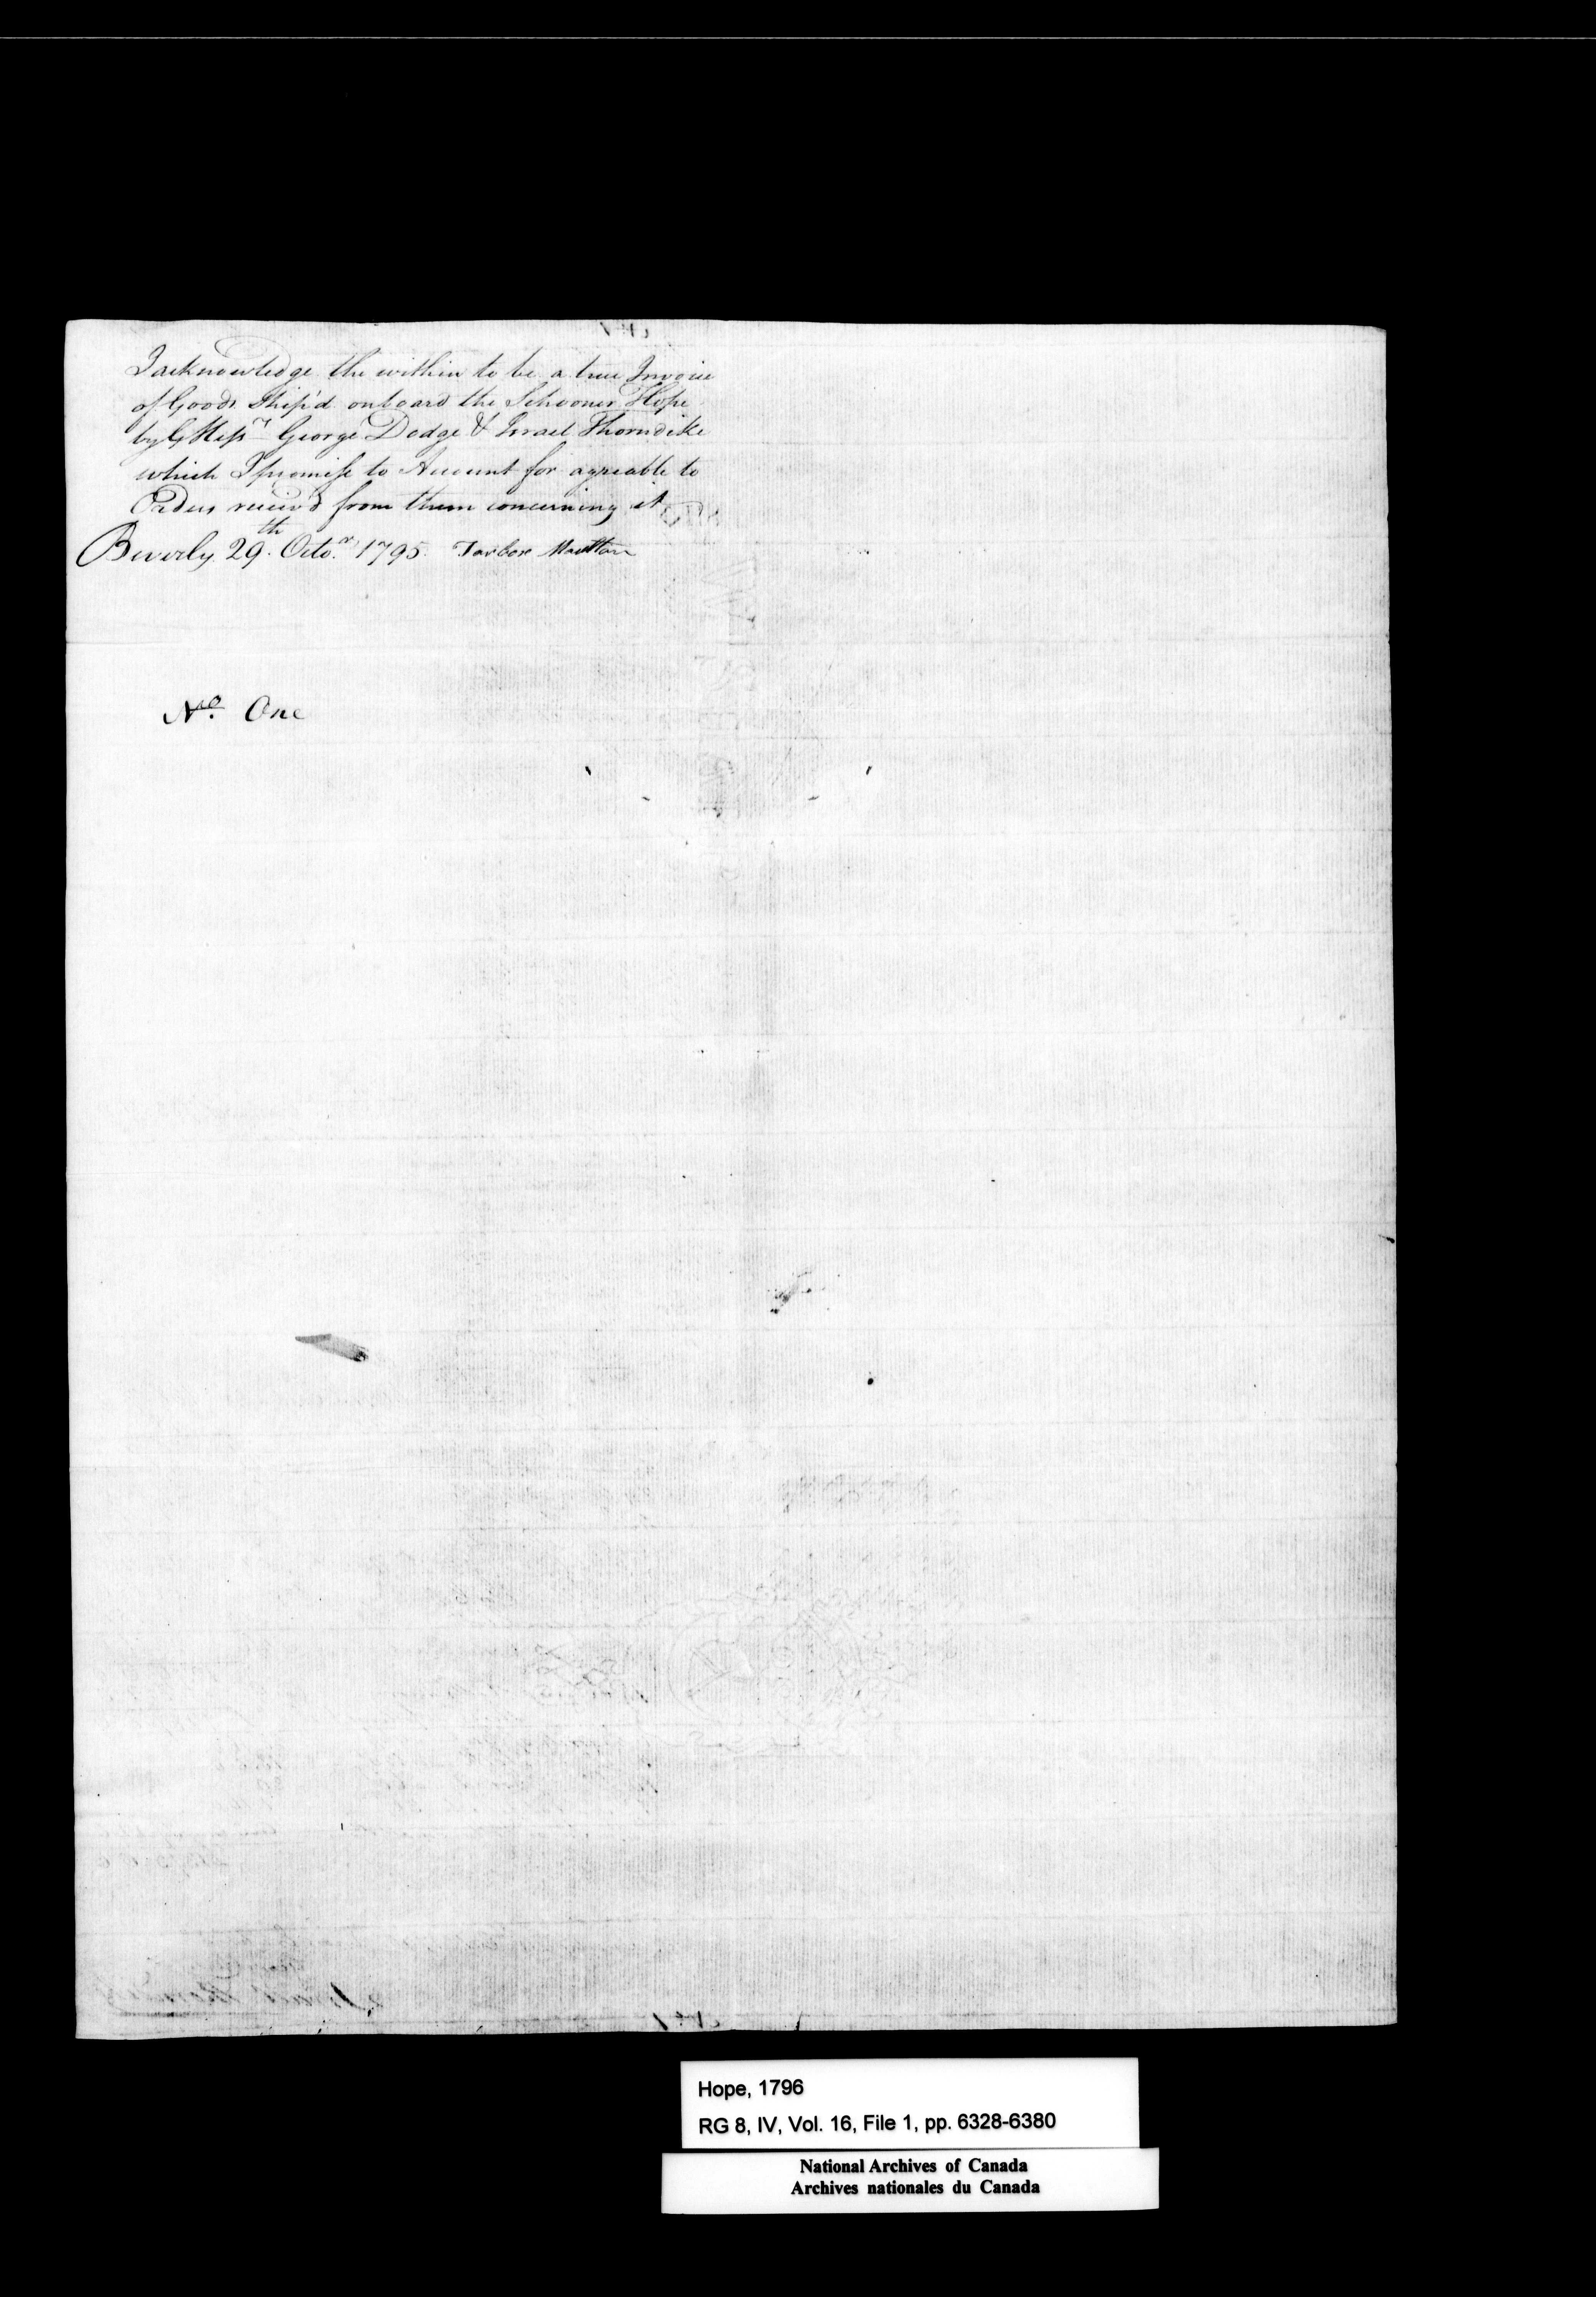 I acknowledge the within to be a true Invoice
of Goods Ship'd onboard the Schooner Hope
by Messrs George Dodge & Israel Thorndike
which I promise to Account for agreable to
Orders receiv'd from them concerning it
Beverly 29th Octor 1795. Tarbox Moulton
No. One
Hope, 1796
RG 8, IV, Vol. 16, File 1, pp. 6328-6380
National Archives of Canada
Archives nationales du Canada